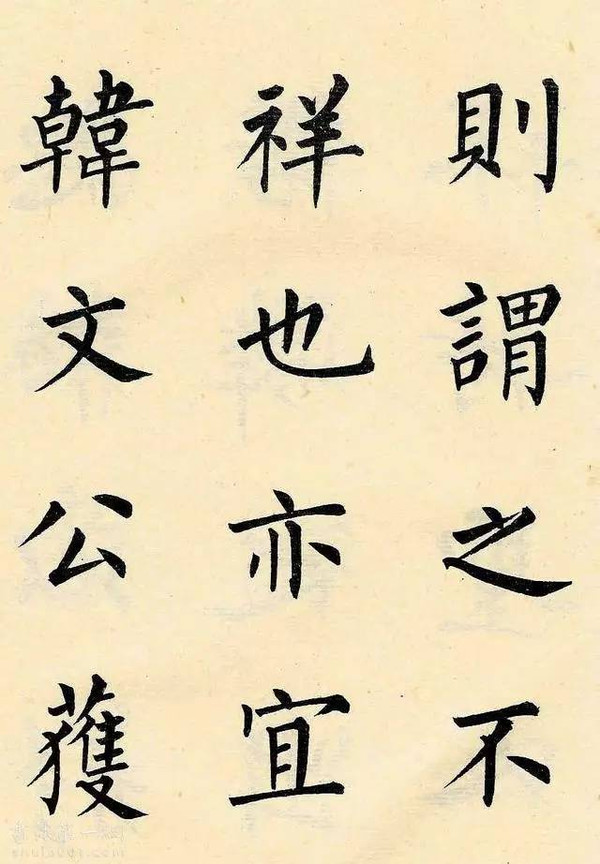 則謂之不
祥也亦宜
韓文公獲